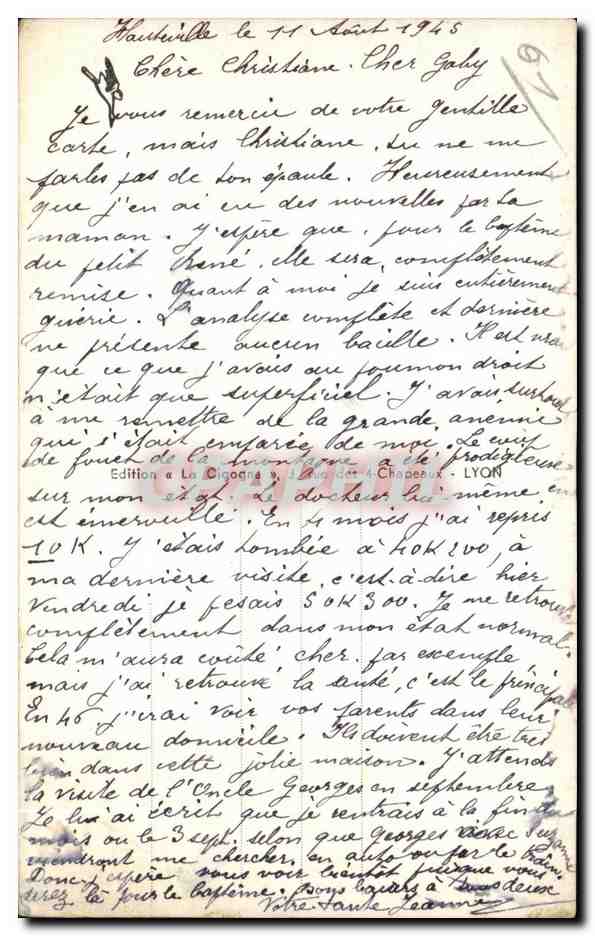 Hauteville le 11 Août 1945
61
Chère Christiane. Cher Gaby
Je vous remercie de votre gentille
carte, mais Christiane, tu ne me
parles pas de ton épaule. Heureusement
que j'en ai eu des nouvelles par ta
maman. J'espère que, pour le baptême
du petit René, elle sera complètement
remise. Quant à moi je suis entièrement
guérie. L'analyse complète et dernière
ne présente aucun bacille. Il est vrai
que ce que j'avais au poumon droit
n'était que superficiel. J'avais surtout
à me remettre de la grande anémie
qui s'était emparée de moi. Le coup
de fouet de la montagne a été prodigieuse
Edition « La Cigogne », 3 Rue des 4-Chapeaux - LYON
sur mon état. Le docteur lui même en
est émerveillé. En 4 mois j'ai repris
10K. J'étais tombée à 40K200, à
ma dernière visite, c'est-à-dire hier
Vendredi je fesais 50K300. Je me retrouve
complètement dans mon état normal.
Cela m'aura coûté cher par exemple,
mais j'ai retrouvé la santé, c'est le principal
En 46 j'irai voir vos parents dans leur
nouveau domicile. Ils doivent être très
bien dans cette jolie maison. J'attends
la visite de l'Oncle Georges en septembre
Je lui ai écrit que je rentrais à la fin du
mois ou le 3 sept. selon que Georges avec Suzanne
viendront me chercher en auto ou par le train
Donc j'espère vous voir bientôt puisque vous
serez là pour le baptême. Bons baisers à tous deux
Votre tante Jeanne